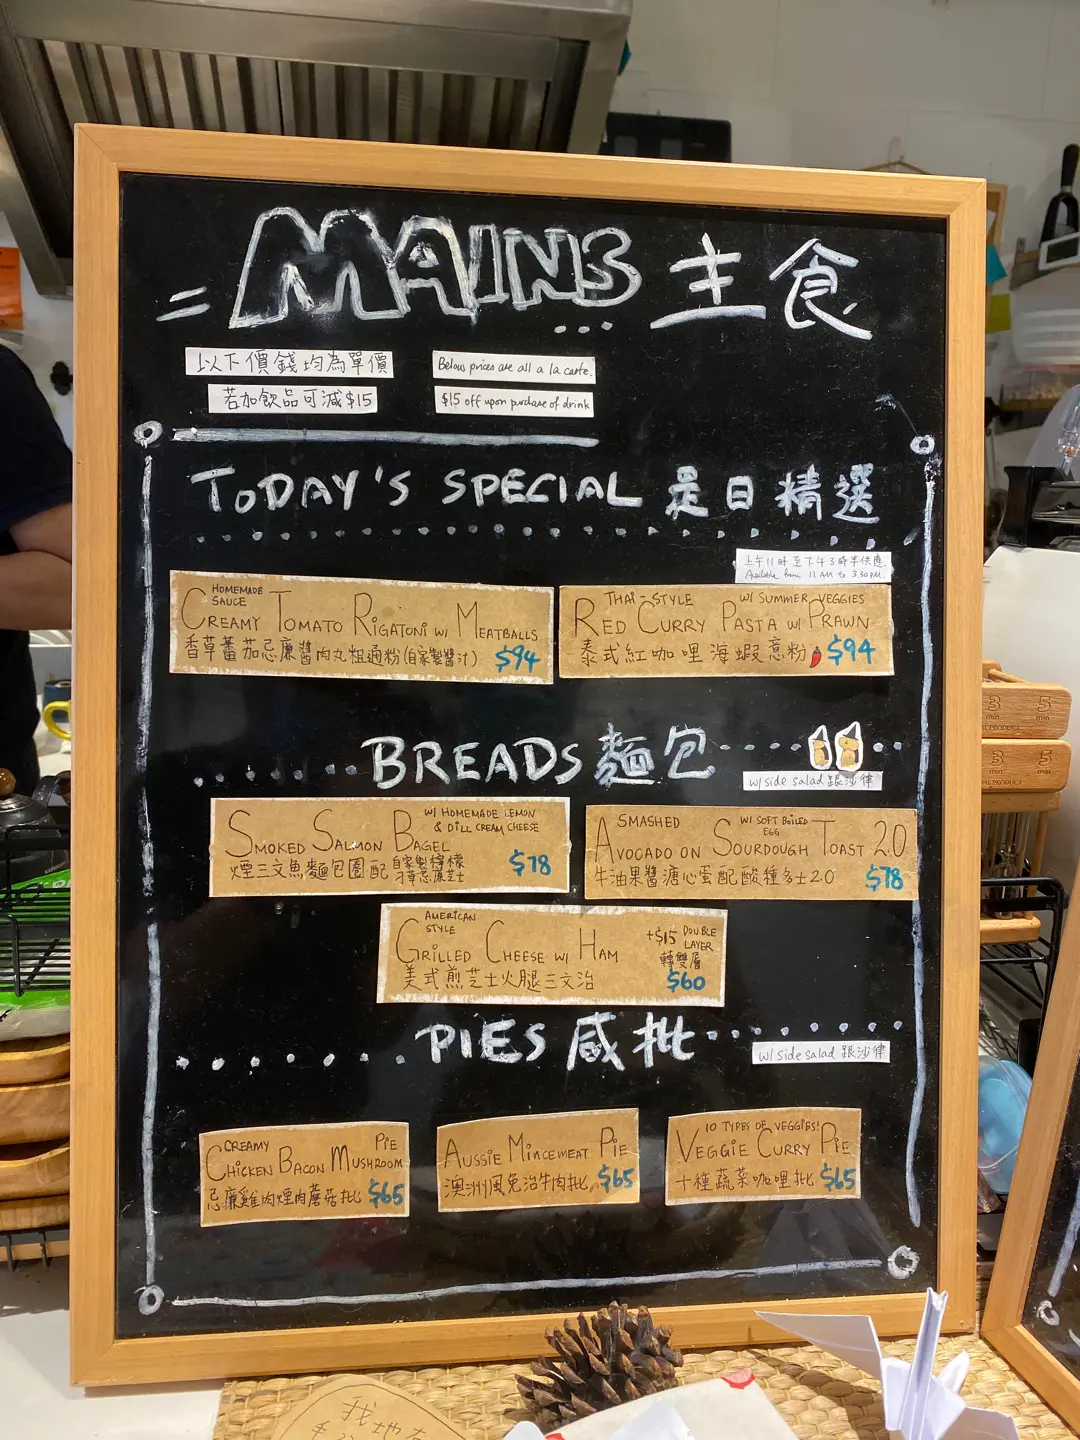 MAINS 主食
以下價錢均為單價
若加飲品可減$15
Below prices are all a la carte.
$15 off upon purchase of drink
TODAY'S SPECIAL 是日精選
上午11時至下午3時半供應
Available from 11AM to 3:30PM.
HOMEMADE SAUCE
CREAMY TOMATO RIGATONI W/ MEATBALLS
香草蕃茄忌廉醬肉丸粗通粉(自家製醬汁) $94
THAI-STYLE W/ SUMMER VEGGIES
RED CURRY PASTA W/ PRAWN
泰式紅咖哩海蝦意粉 $94
BREADS 麵包
w/ side salad 跟沙律
W/ HOMEMADE LEMON & DILL CREAM CHEESE
SMOKED SALMON BAGEL
煙三文魚麵包圈配自家製檸檬刁草忌廉芝士 $78
SMASHED W/ SOFT BOILED EGG
AVOCADO ON SOURDOUGH TOAST 2.0
牛油果醬溏心蛋配酸種多士2.0 $78
AMERICAN STYLE
GRILLED CHEESE W/ HAM
美式煎芝士火腿三文治
+$15 DOUBLE LAYER
轉雙層
$60
PIES 咸批
w/ side salad 跟沙律
CREAMY PIE
CHICKEN BACON MUSHROOM
忌廉雞肉煙肉蘑菇批 $65
AUSSIE MINCEMEAT PIE
澳洲風免治牛肉批 $65
10 TYPES OF VEGGIES!
VEGGIE CURRY PIE
十種蔬菜咖哩批 $65
3 min 5 min
3 min 5 min
我地有